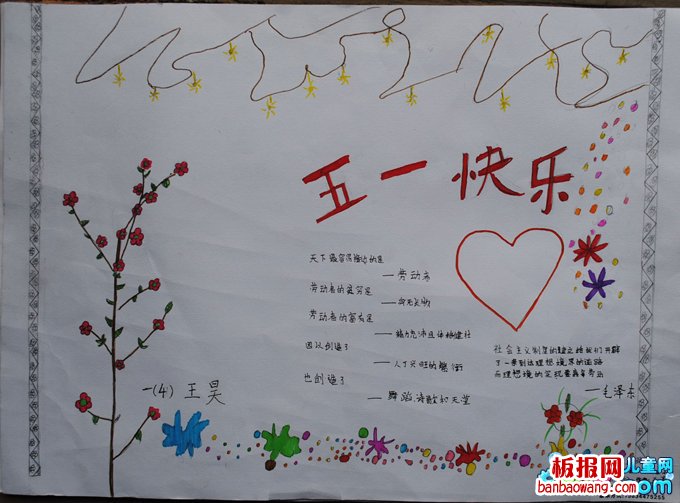 五一快乐
天下最容易推动的是
——劳动者
劳动者的贫穷是
劳动者的富有是
——精力充沛且体格健壮
因以创造了
也创造了
——舞蹈诗歌和天堂
社会主义制度的建立给我们开辟
了一条到达理想境界的道路
而理想境的实现要靠辛劳动
——毛泽东
一(4) 王昊
儿童网
板报网
banbaowang.com